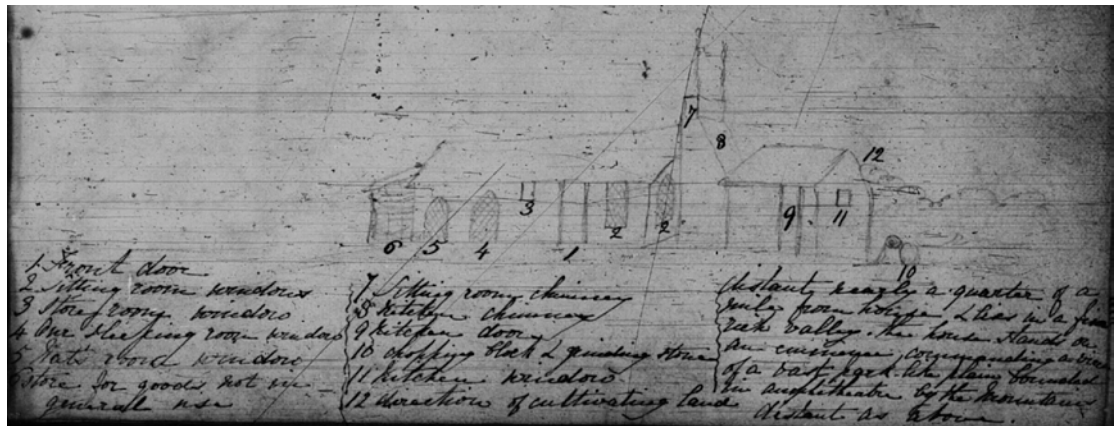 7
8
12
3
9
11
2
2
6
5
4
1
10
1 Front door
2 Sitting room windows
3 Store room window
4 Our sleeping room window
5 Kate's room window
6 store for goods not in
general use
7 Sitting room chimney
8 Kitchen chimney
9 Kitchen door
10 chopping block & grinding stone
11 Kitchen window
12 direction of cultivating land
distant nearly a quarter of a
mile from house & lies in a fine
rich valley. the house stands on
an eminence, commanding a view
of a vast park like plain bounded
in amphitheatre by the Mountains
distant as above.